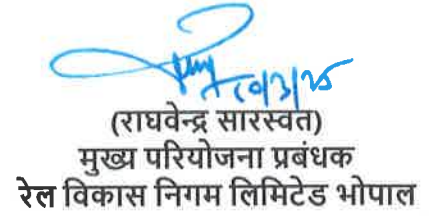 (राघवेन्द्र सारस्वत)
मुख्य परियोजना प्रबंधक
रेल विकास निगम लिमिटेड भोपाल